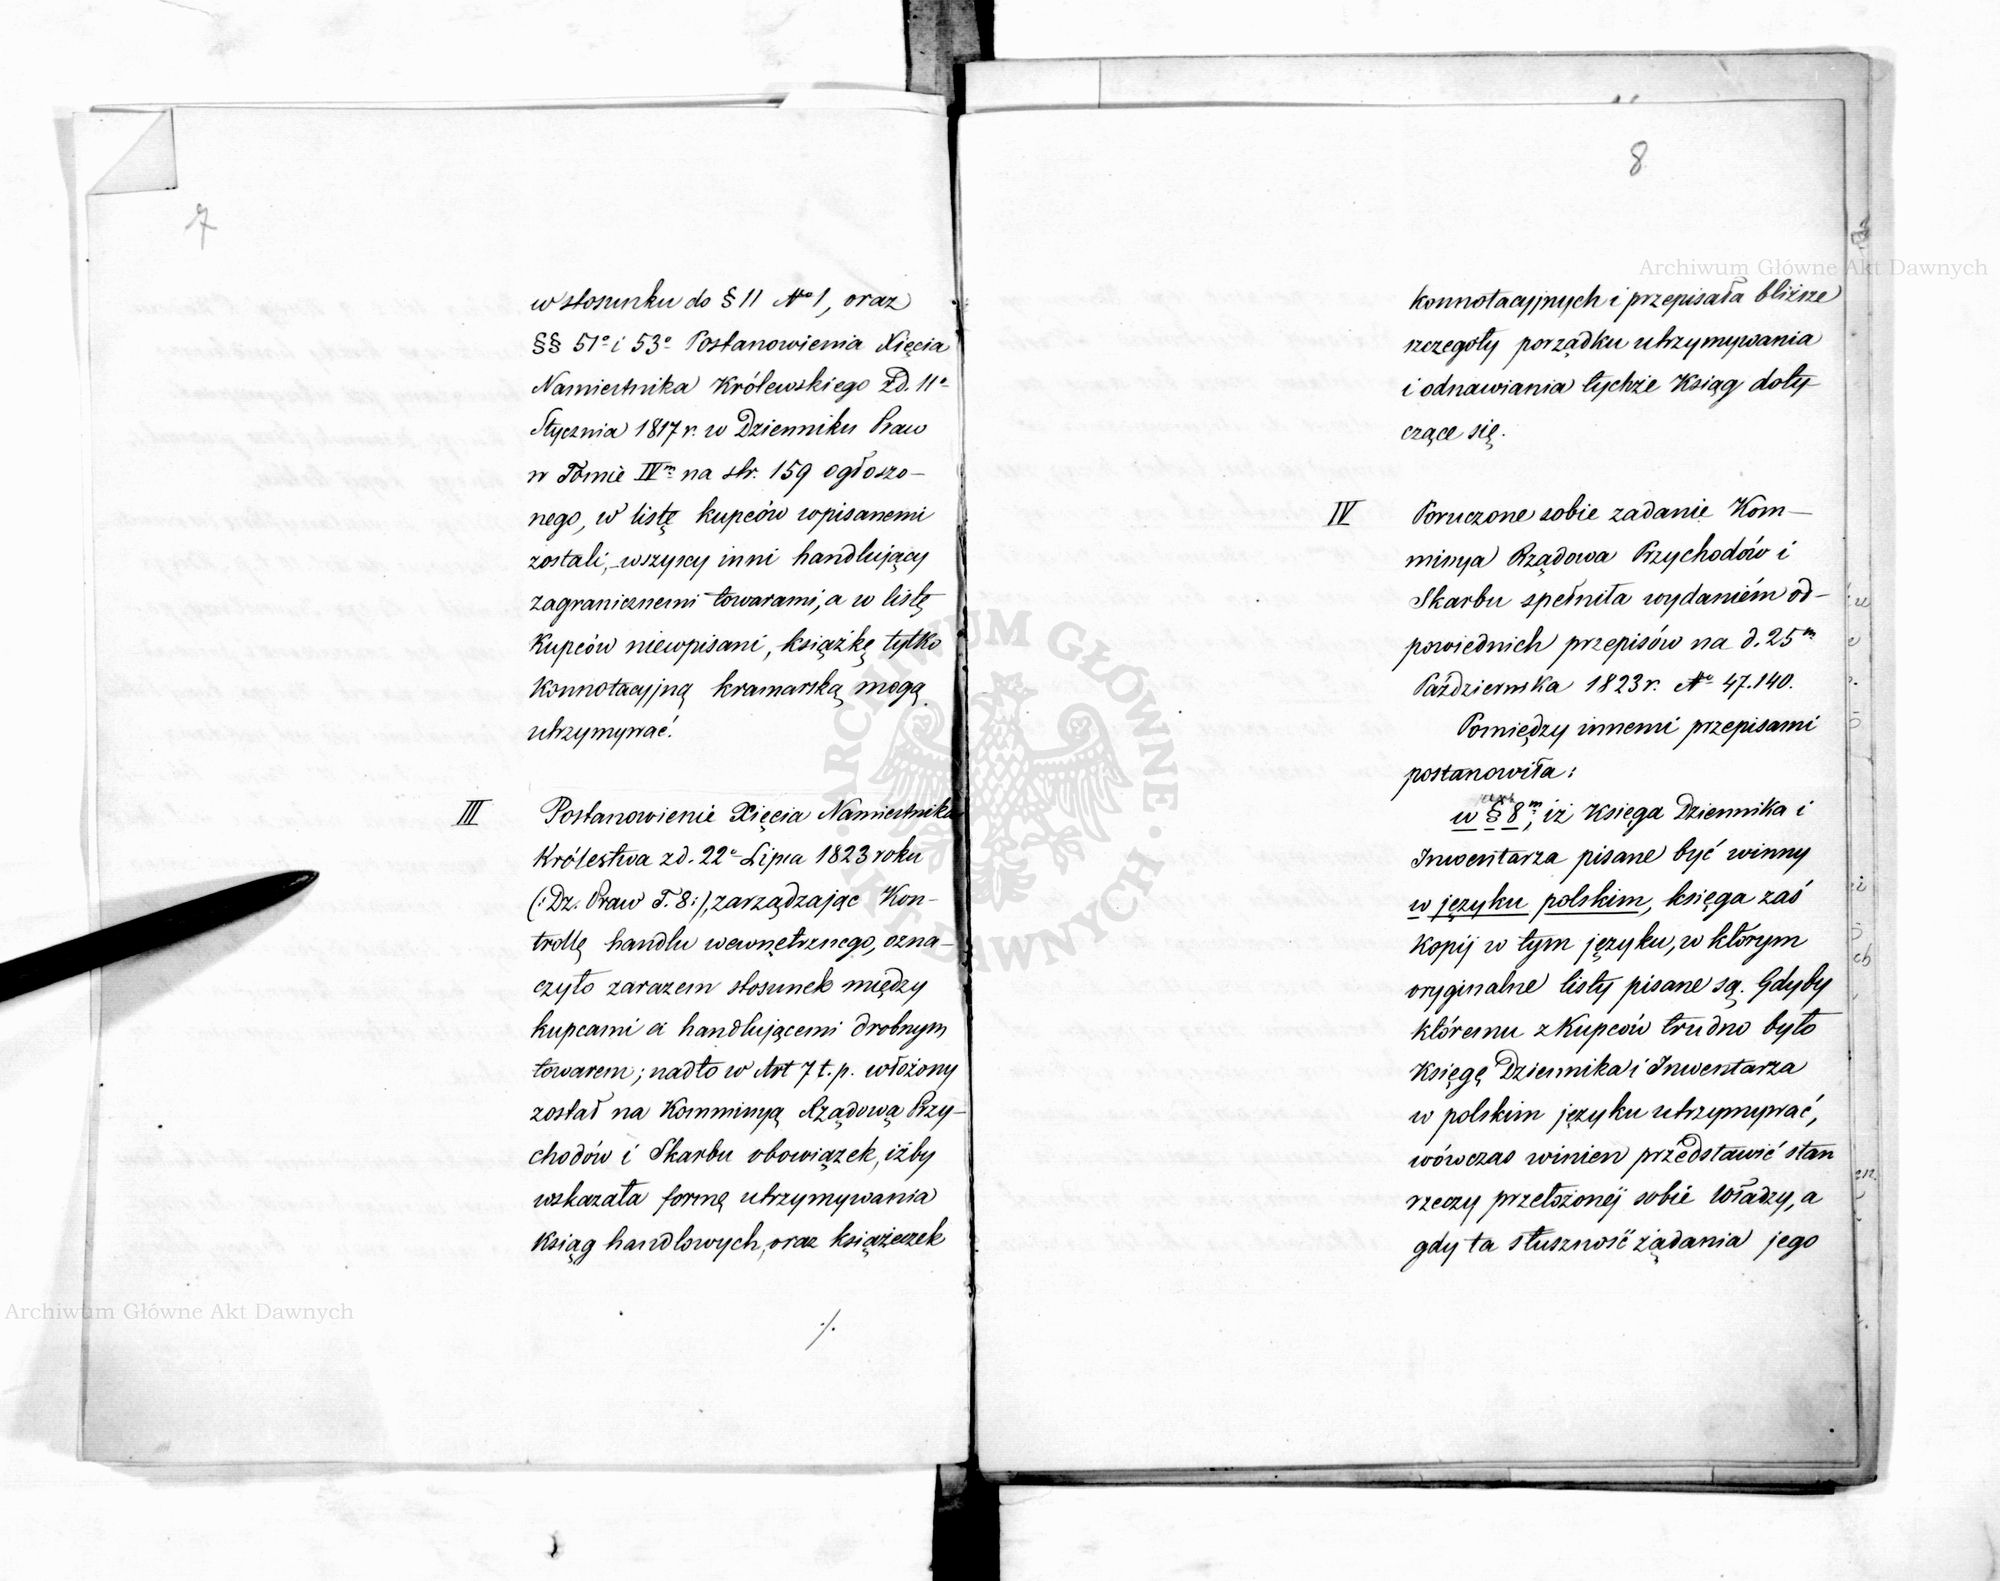 7
w stosunku do § 11 No 1, oraz
§§ 51o i 53o Postanowienia Xięcia
Namiestnika Królewskiego z d. 11o
Stycznia 1817 r. w Dzienniku Praw
w Tomie IVm na str. 159 ogłoszo–
nego, w listę kupców wpisanemi
zostali, – wszyscy inni handlujący
zagranicznemi towarami, a w listę
Kupców niewpisani, książkę tylko
Konnotacyjną kramarską mogą
utrzymywać.
III Postanowienie Xięcia Namiestnika
Królestwa z d. 22o Lipca 1823 roku
(: Dz. Praw T. 8:), zarządzając Kon–
trollę handlu wewnętrznego, ozna–
czyło zarazem stosunek między
kupcami a handlującemi drobnym
towarem; nadto w Art 7 t. p. włożony
został na Kommissyą Rządową Przy–
chodów i Skarbu obowiązek, iżby
wskazała formę utrzymywania
Ksiąg handlowych, oraz książeczek
./.
8
Konnotacyjnych i przepisała bliższe
szczegóły porządku utrzymywania
i odnawiania tychże Ksiąg doty–
czące się.
IV Poruczone sobie zadanie Kom–
missya Rządowa Przychodów i
Skarbu spełniła wydaniém od–
powiednich przepisów na d. 25m
Październska 1823 r. No 47.140.
Pomiędzy innemi przepisami
postanowiła:
w § 8m, iż Księga Dziennika i
Inwentarza pisane być winny
w języku polskim, księga zaś
Kopij w tym języku, w którym
oryginalne listy pisane są. Gdyby
któremu z Kupców trudno było
Księgę Dziennika i Inwentarza
w polskim języku utrzymywać,
wówczas winien przedstawić stan
rzeczy przełożonéj sobie Władzy, a
gdy ta słuszność żądania jego
Archiwum Główne Akt Dawnych
Archiwum Główne Akt Dawnych
ARCHIWUM GŁÓWNE · AKT DAWNYCH ·